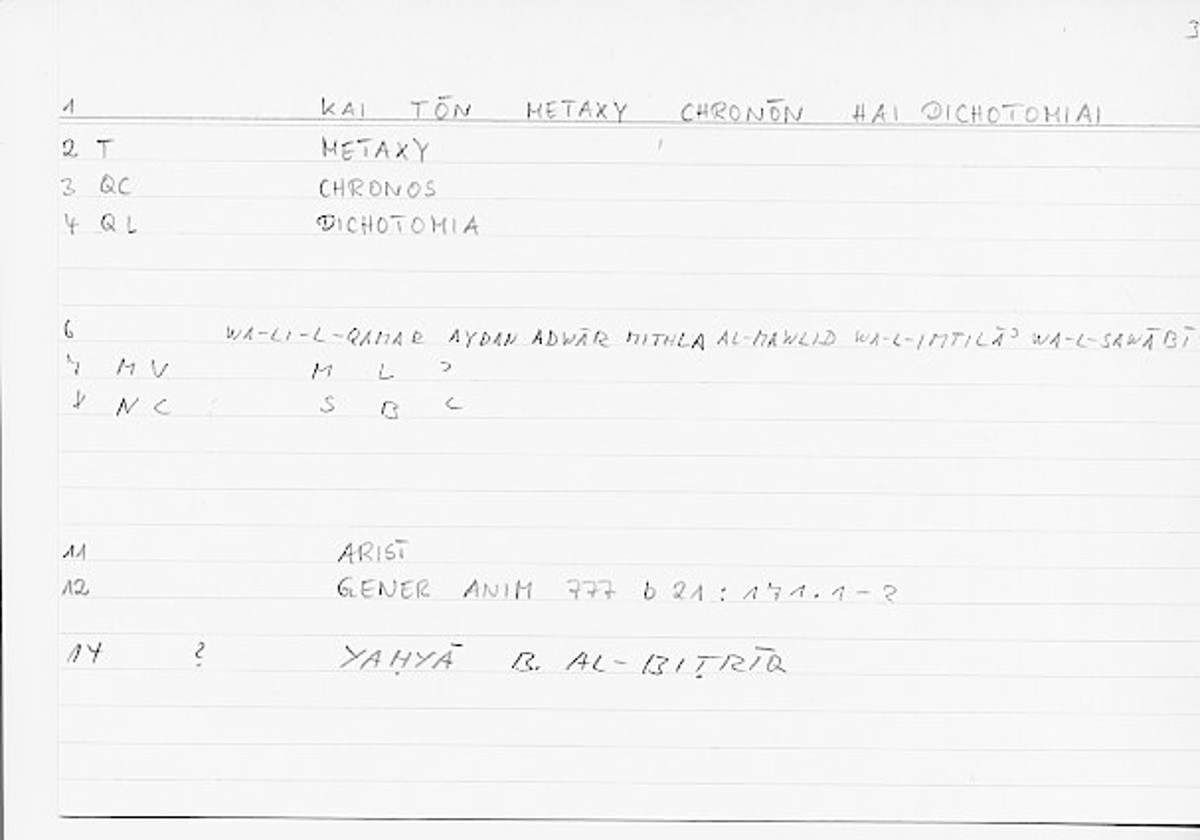 3
1 KAI TŌN METAXY CHRONŌN HAI DICHOTOMIAI
2 T METAXY
3 QC CHRONOS
4 QL DICHOTOMIA
6 WA-LI-L-QAMAR AYDAN ADWĀR MITHLA AL-MAWLID WA-L-IMTILĀʾ WA-L-SAWĀBĪ
7 M V M L ʾ
8 N C S B ʿ
11 ARIST
12 GENER ANIM 777 b 21 : 171.1-2
14 ? YAḤYĀ B. AL-BIṬRĪQ